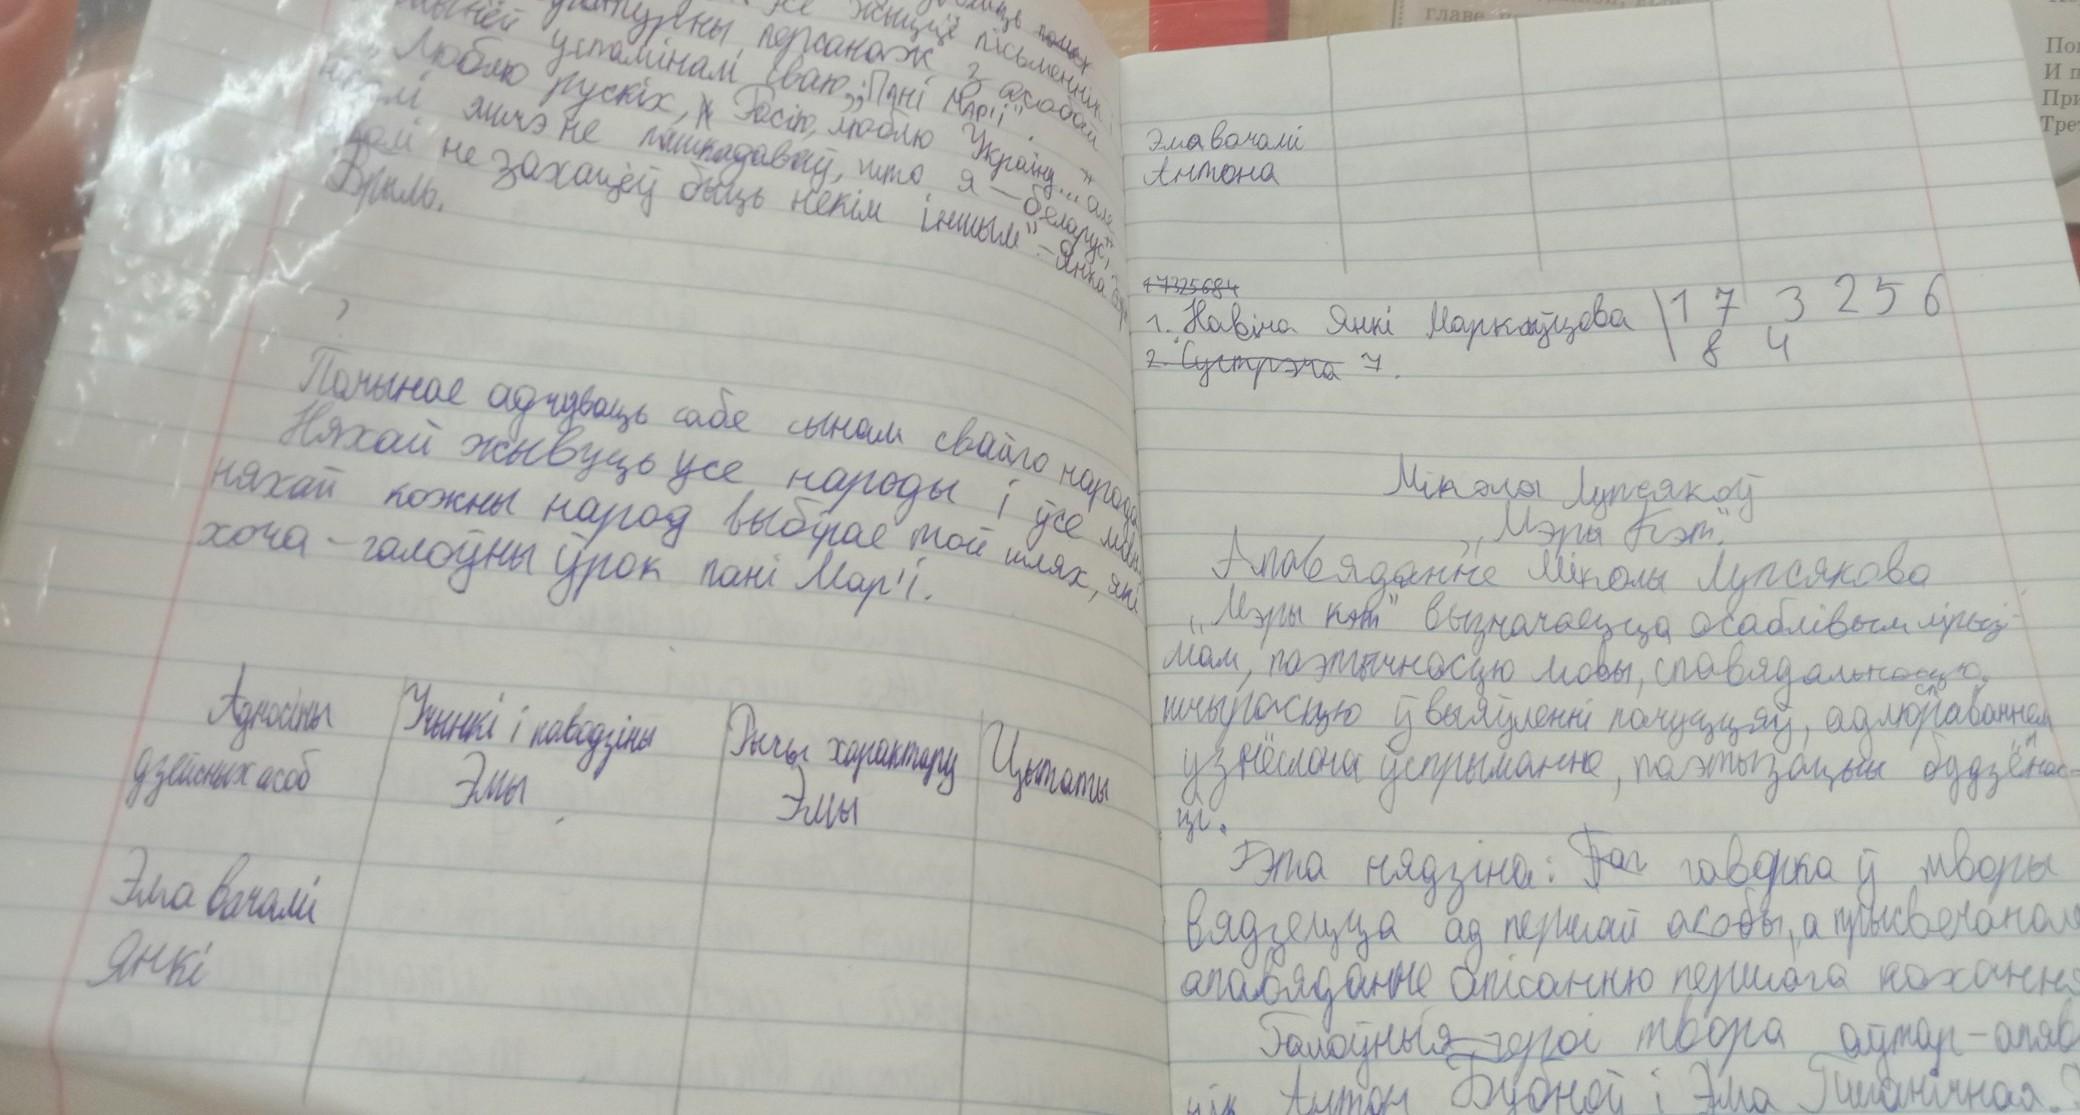 усё жыццё пісьменнік
персанаж з асобай
успамінамі сваю "Пані Мар'іі".
„Люблю рускіх, Расію, люблю Украіну... але
ніколі яшчэ не пашкадаваў, што я – беларус,
ніколі не захацеў быць некім іншым" – Янка
Брыль.
Пачынае адчуваць сабе сынам свайго народа
Няхай жывуць усе народы і ўсе мовы
няхай кожны народ выбірае той шлях, які
хоча – галоўны ўрок пані Мар'і.
Адносіны дзейных асоб
Учынкі і паводзіны Эмы
Рычы характару Эмы
Цытаты
Эма вачамі
Янкі
Эма вачамі
Антона
17325684
1. Навіна Янкі Маркаўцова 1 7 3 2 5 6
8 4
2. Сустрэча 7.
Мікола Лупсякоў
„Мэры Кэт"
Апавяданне Міколы Лупсякова
„Мэры Кэт" вызначаецца асаблівым лірыз-
мам, паэтычнасцю мовы, спавядальнасцю,
шчырасцю ў выяўленні пачуццяў, адлюстраваннем
узнёслага ўспрымання, паэтызацыі будзённас-
ці.
Гэта нядзіна: Бо гаворка ў творы
вядзецца ад першай асобы, а прысвечана
апавяданне апісанню першага кахання
Галоўныя героі твора аўтар-апавя
нік Антон Бубной і Эма Пшанічная.
главе
По
И п
При
Тре